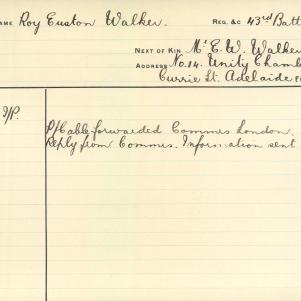 NAME Roy Euston Walker. REG. &C 43rd Batt
NEXT OF KIN Mr E. W. Walker
ADDRESS No. 14. Unity Chamb
Currie St. Adelaide
P/Cable forwarded Commis London.
Reply from Commis. Information sent